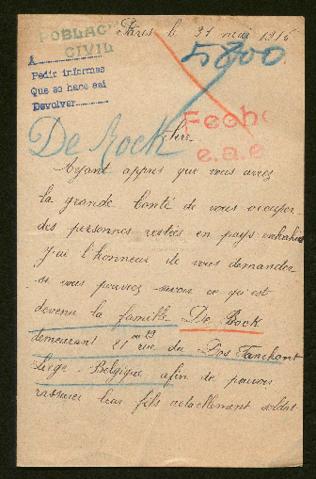 POBLAC
CIVIL
Paris le 31 mai 1916
5800
A
Pedir informes
Que se hace así
Devolver
Fecho
e.a.e
De Rock
Sire
Ayant appris que vous avez
la grande bonté de vous occuper
des personnes restées en pays envahis
j'ai l'honneur de vous demander
si vous pouvez savoir ce qu'est
devenu la famille De Bock
demeurant 21 rue du Dos Fanchont
Liège - Belgique afin de pouvoir
rassurer leur fils actuellement soldat